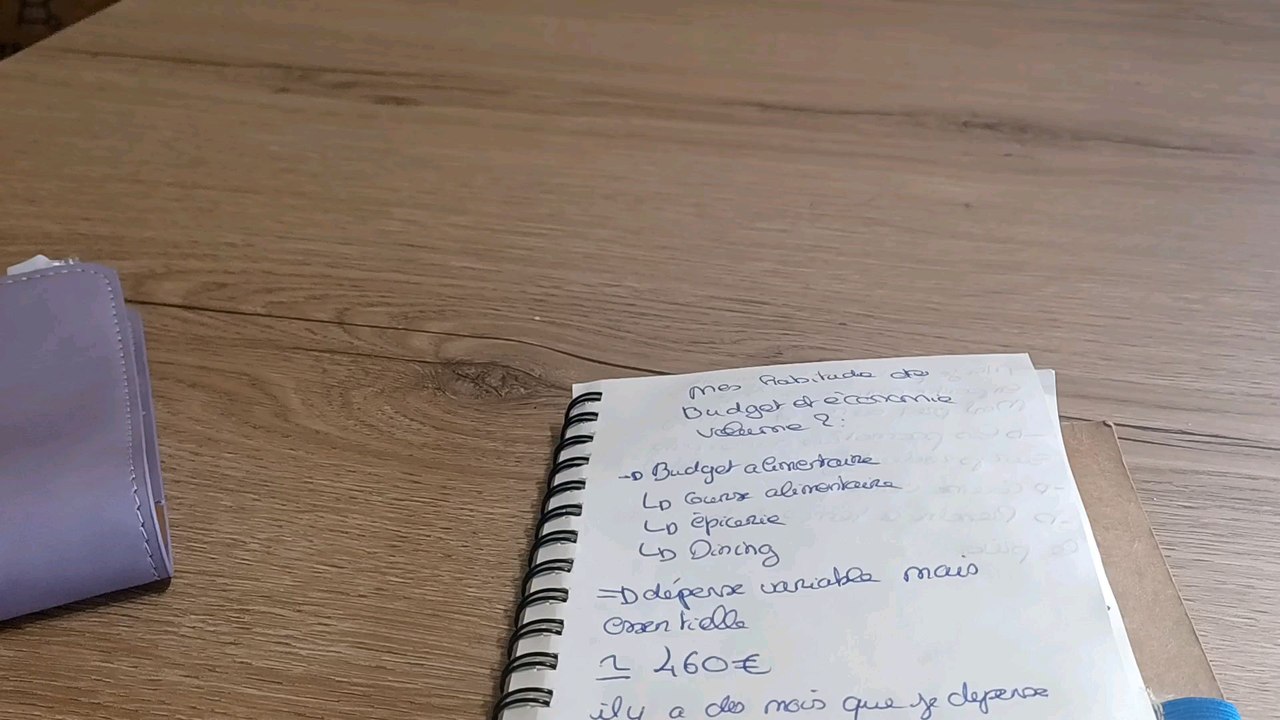 Mes habitude de
Budget et économie
volume 2:
→ Budget alimentaire
↳ Course alimentaire
↳ épicerie
↳ Dining
⇒ dépense variable mais
essentielle
≃ 460€
il y a des mois que je depense